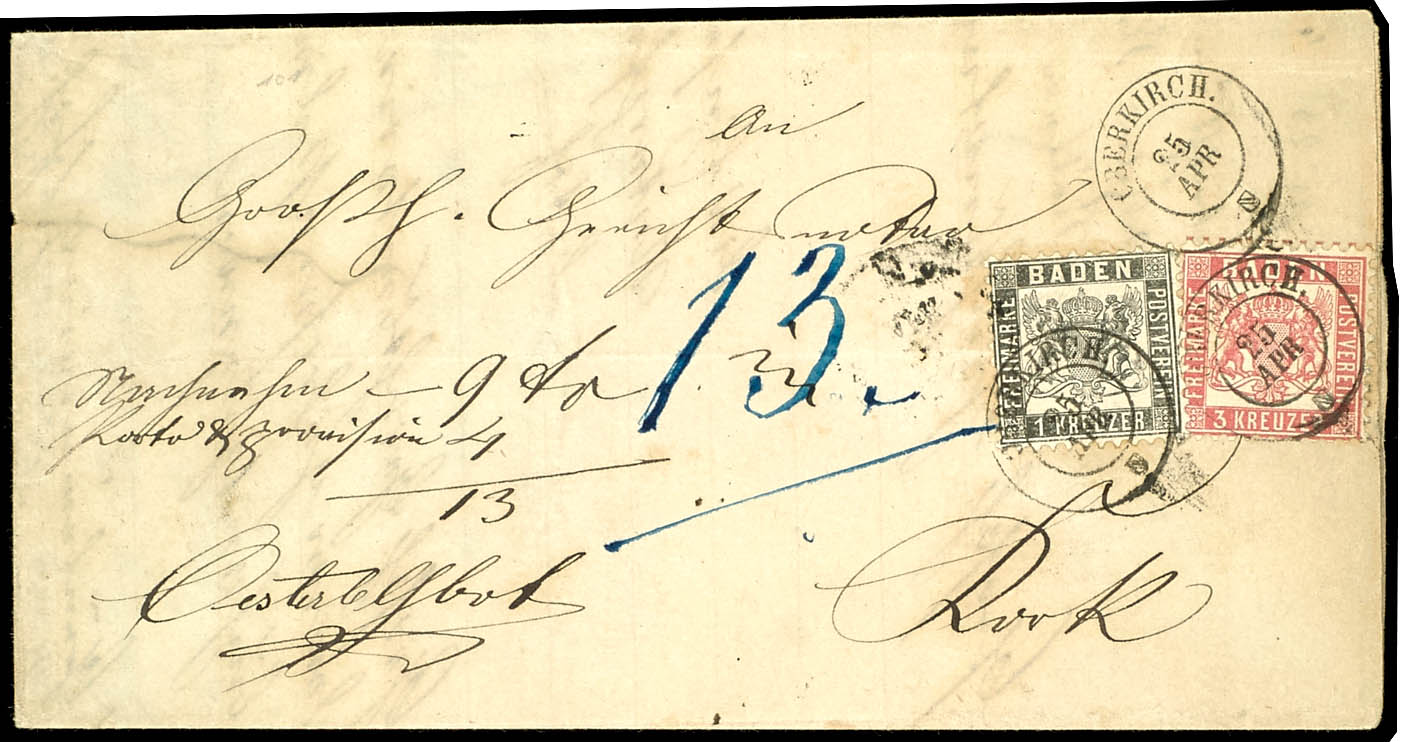 An
Großh. Gericht Notar
OBERKIRCH.
25
APR
BADEN
FREIMARKE
POSTVEREIN
1 KREUZER
BADEN
FREIMARKE
POSTVEREIN
3 KREUZER
OBERKIRCH.
25
APR
OBERKIRCH.
25
APR
13.
Nachnahm – 9 xr
Porto & provision 4
13